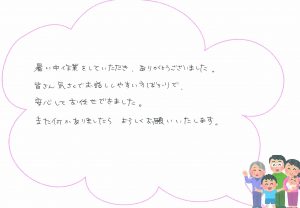 暑い中作業をしていただき、ありがとうございました。
皆さん気さくでお話ししやすい方ばかりで、
安心してお任せできました。
また何かありましたら よろしくお願いいたします。